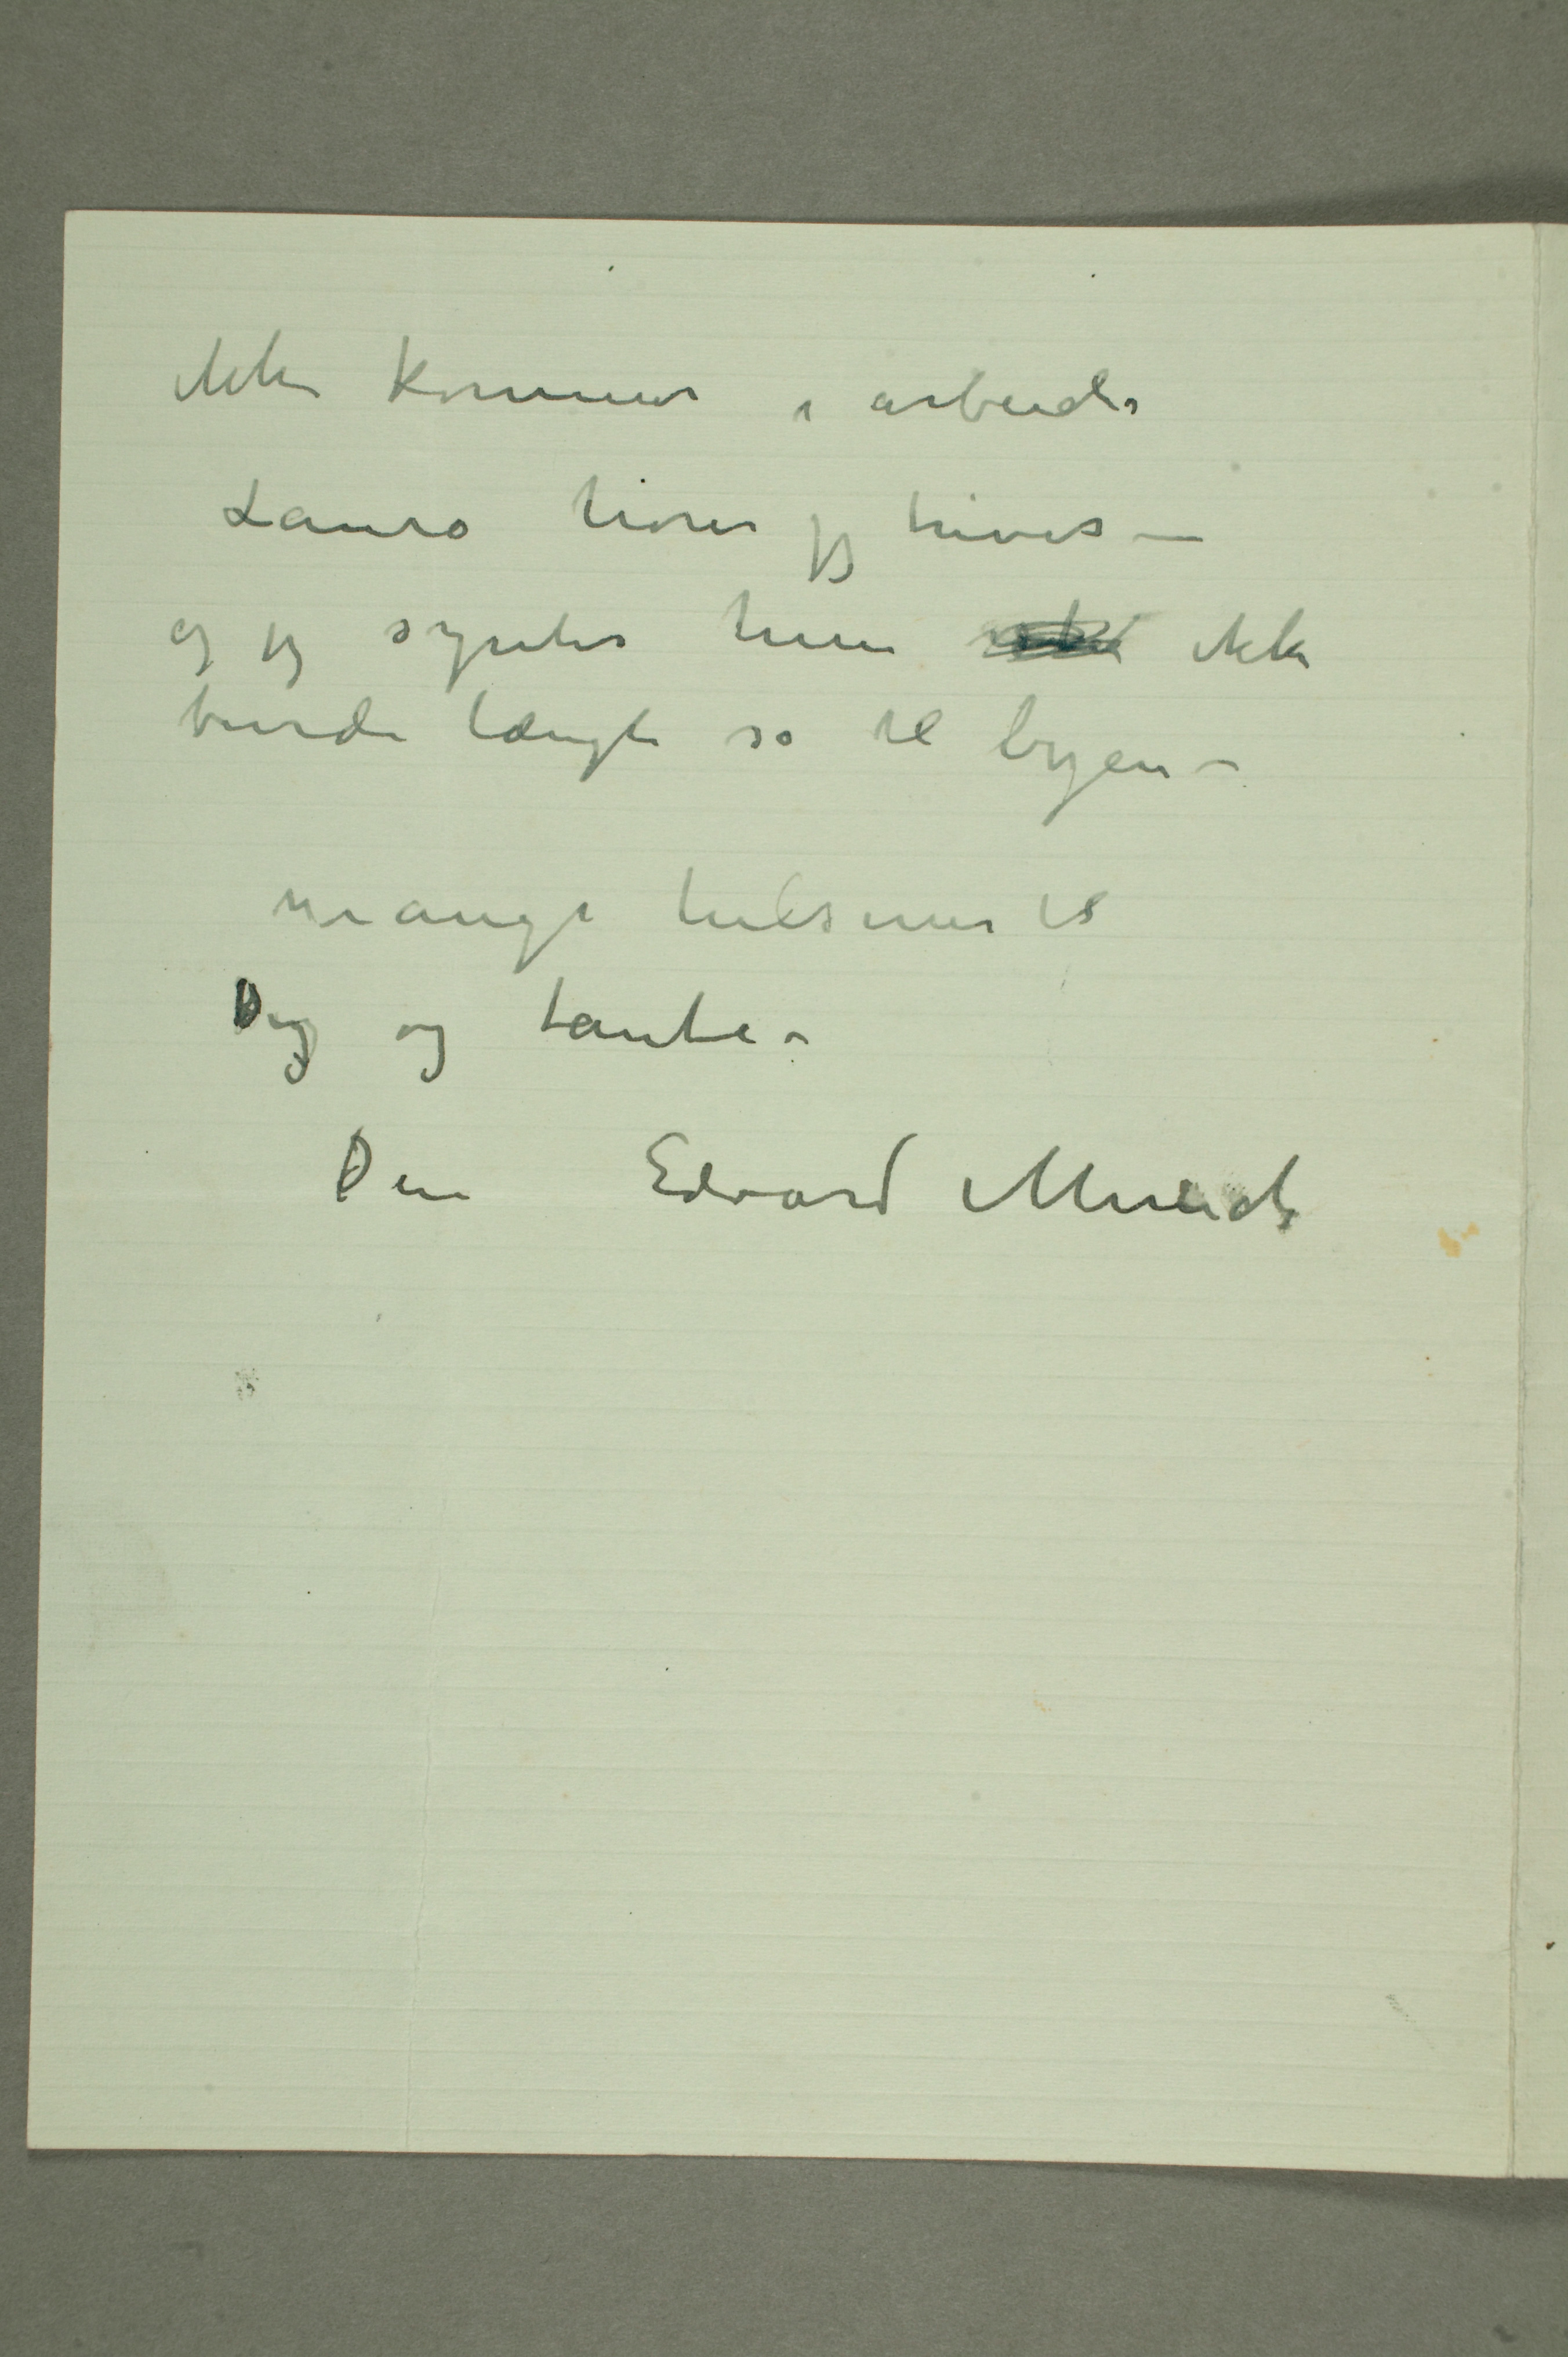 ikke kommer i arbeide
Laura hører jeg trives –
og jeg syntes hun ikke
burde længte så til byen –
mange hilsener til
Dig og tante –
Din Edvard Munch